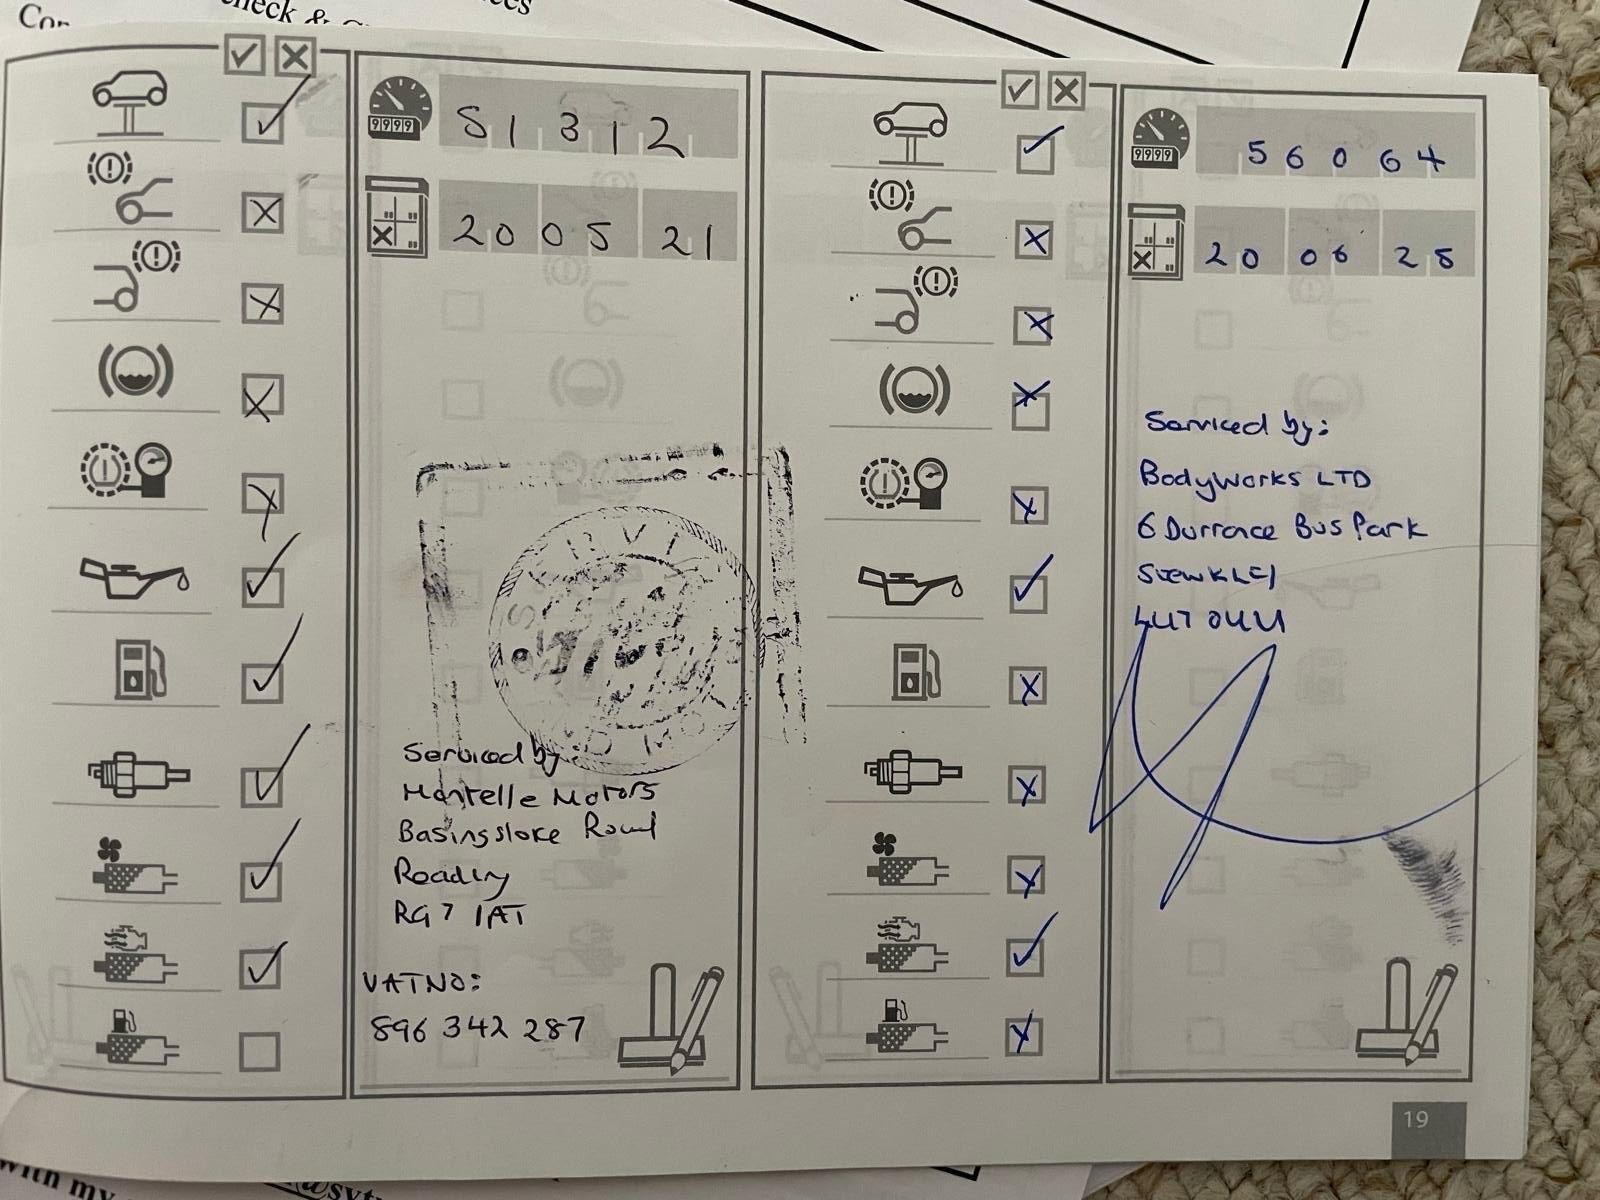 check &
S1312
20 05 21
Serviced by:
Mantelle Motors
Basingstoke Road
Reading
RG7 1AT
VAT NO:
896 342 287
56064
20 06 25
Serviced by:
BodyWorks LTD
6 Durrance Bus Park
9999
9999
19
with my